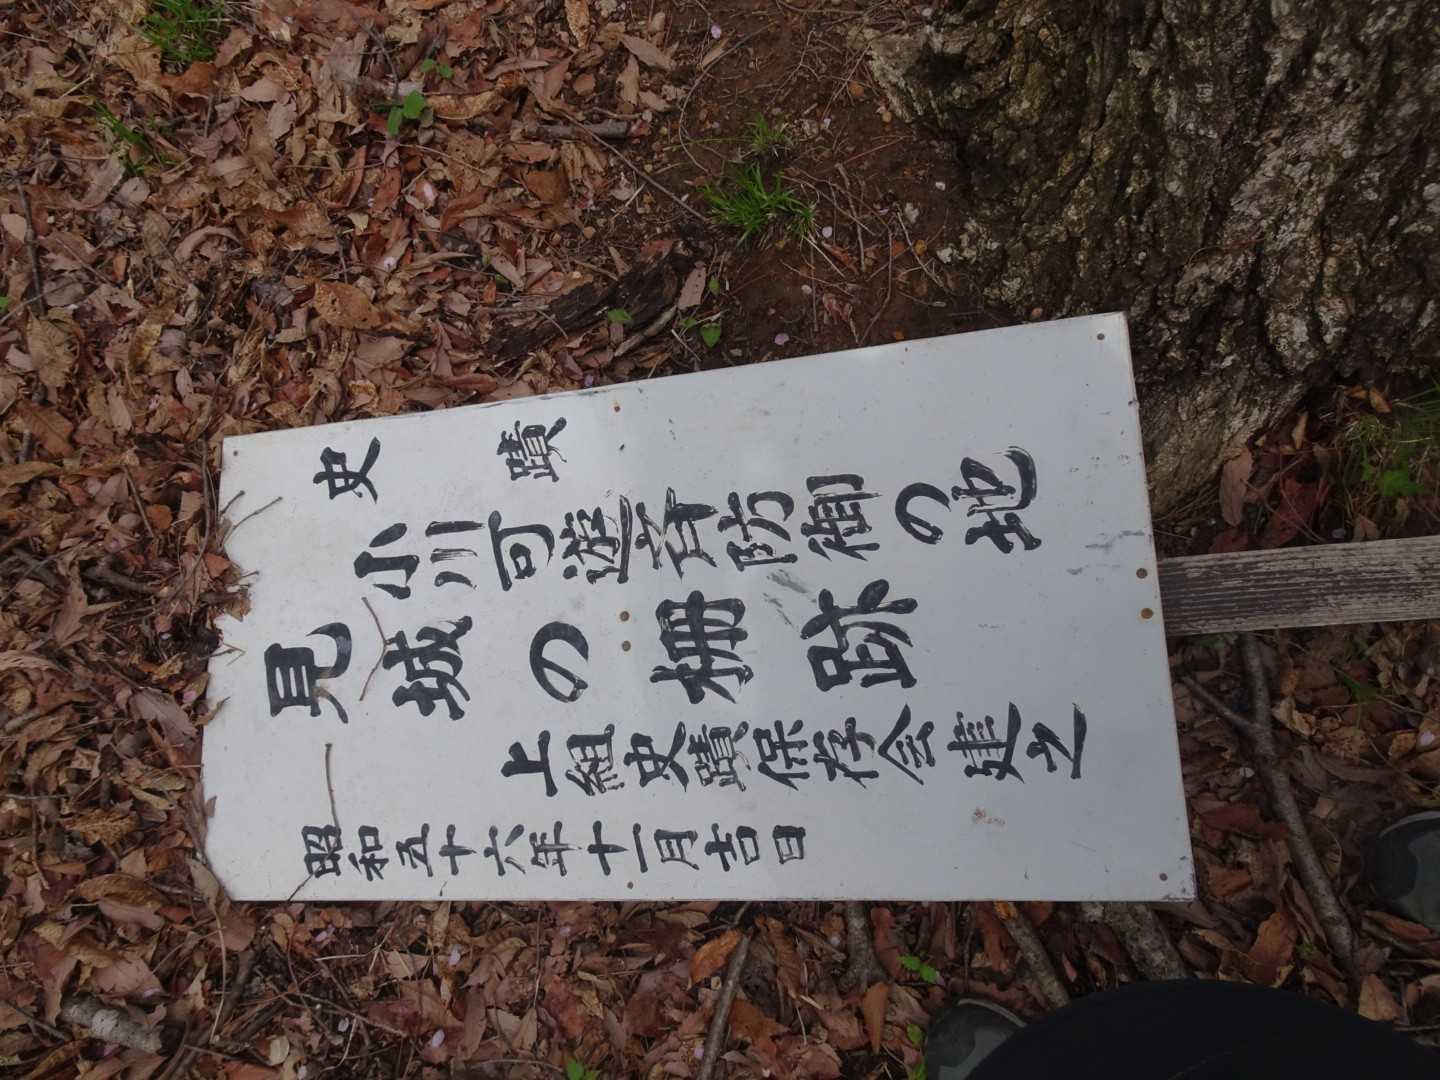 史蹟
小川可遊斉防御の地
見城の柵跡
上組史蹟保存会建立
昭和五十六年十一月吉日